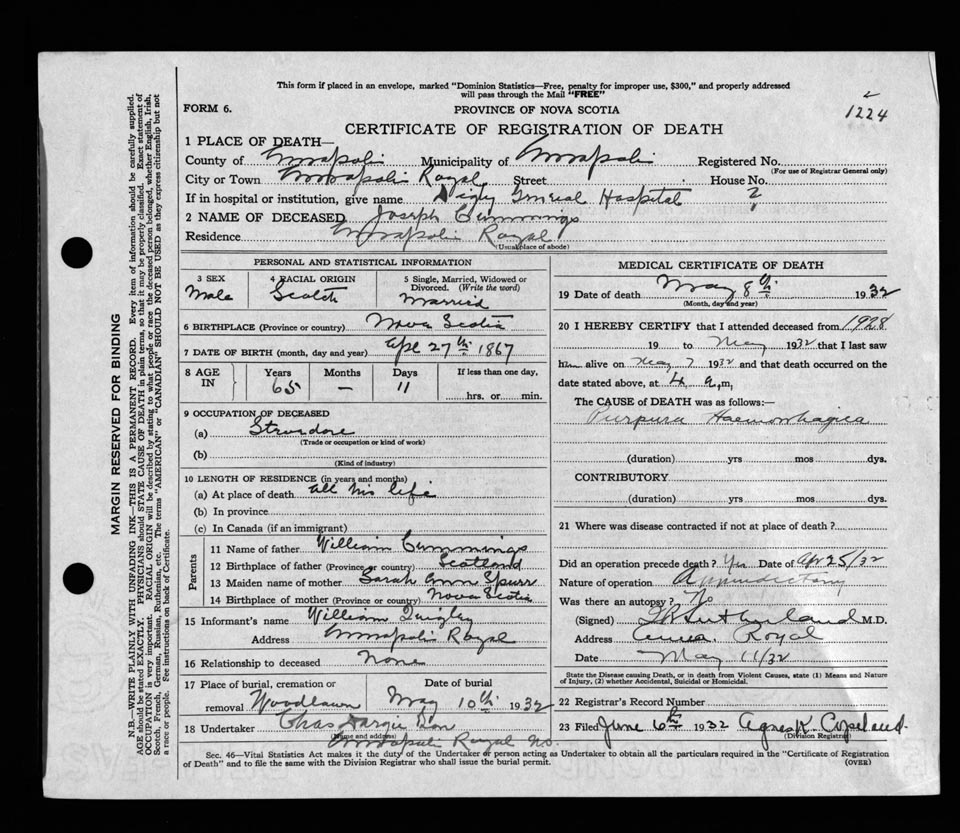 This form if placed in an envelope, marked "Dominion Statistics—Free, penalty for improper use, $300," and properly addressed
will pass through the Mail "FREE"
FORM 6. PROVINCE OF NOVA SCOTIA 1224
CERTIFICATE OF REGISTRATION OF DEATH
1 PLACE OF DEATH—
County of Annapolis Municipality of Annapolis Registered No.
(For use of Registrar General only)
City or Town Annapolis Royal Street House No.
If in hospital or institution, give name Digby General Hospital ?
2 NAME OF DECEASED Joseph Cummings
Residence Annapolis Royal
(Usual place of abode)
PERSONAL AND STATISTICAL INFORMATION
3 SEX 4 RACIAL ORIGIN 5 Single, Married, Widowed or
Divorced. (Write the word)
Male Scotch Married
6 BIRTHPLACE (Province or country) Nova Scotia
7 DATE OF BIRTH (month, day and year) Apl 27th 1867
8 AGE IN Years Months Days If less than one day,
65 — 11 hrs. or min.
9 OCCUPATION OF DECEASED
(a) Stevedore
(Trade or occupation or kind of work)
(b)
(Kind of industry)
10 LENGTH OF RESIDENCE (in years and months)
(a) At place of death all his life
(b) In province
(c) In Canada (if an immigrant)
Parents
11 Name of father William Cummings
12 Birthplace of father (Province or country) Scotland
13 Maiden name of mother Sarah Ann Spurr
14 Birthplace of mother (Province or country) Nova Scotia
15 Informant's name William Quigley
Address Annapolis Royal
16 Relationship to deceased None
17 Place of burial, cremation or Date of burial
removal Woodlawn May 10th 1932
18 Undertaker Chas Hargie Son
(Name and address)
Annapolis Royal N.S.
MEDICAL CERTIFICATE OF DEATH
19 Date of death May 8th 1932
(Month, day and year)
20 I HEREBY CERTIFY that I attended deceased from 1928
19 to May 1932 that I last saw
him alive on May 7 1932 and that death occurred on the
date stated above, at 4 a.m,
The CAUSE of DEATH was as follows:—
Purpura Haemorrhagica
(duration) yrs mos dys.
CONTRIBUTORY
(duration) yrs mos dys.
21 Where was disease contracted if not at place of death?
Did an operation precede death? Yes Date of Apr 25/32
Nature of operation Appendectomy
Was there an autopsy? No
(Signed) Sutherland M.D.
Address Anna. Royal
Date May 11/32
State the Disease causing Death, or in death from Violent Causes, state (1) Means and Nature
of Injury, (2) whether Accidental, Suicidal or Homicidal.
22 Registrar's Record Number
23 Filed June 6th 1932 Agnes K Copeland.
(Division Registrar)
Sec. 46—Vital Statistics Act makes it the duty of the Undertaker or person acting as Undertaker to obtain all the particulars required in the "Certificate of Registration
of Death" and to file the same with the Division Registrar who shall issue the burial permit. (OVER)
MARGIN RESERVED FOR BINDING
N.B.—WRITE PLAINLY WITH UNFADING INK—THIS IS A PERMANENT RECORD. Every item of information should be carefully supplied.
AGE should be stated EXACTLY. PHYSICIANS should STATE CAUSE OF DEATH in plain terms, so that it may be properly classified. Exact statement of
OCCUPATION is very important. RACIAL ORIGIN will be described by stating to what people or race the deceased person belonged, whether English, Irish,
Scotch, French, German, Russian, Ruthenian, etc. The terms "AMERICAN" or "CANADIAN" SHOULD NOT BE USED as they express citizenship but not
a race or people. See instructions on back of Certificate.